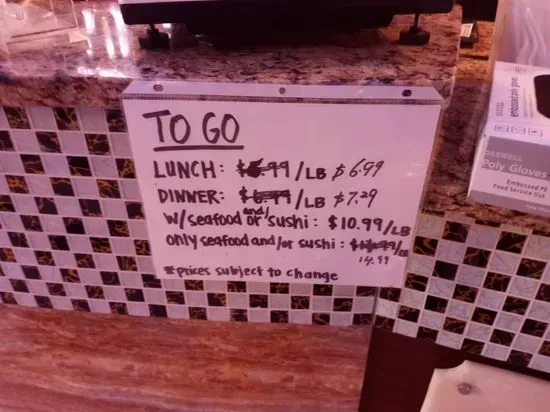 TO GO
LUNCH: $6.99/LB $6.99
DINNER: $6.99/LB $7.29
w/seafood and/or sushi: $10.99/LB
only seafood and/or sushi: /LB
14.99
*prices subject to change
embossed poly gloves
MAXWELL
Poly Gloves
Embossed PE
Food Service Use